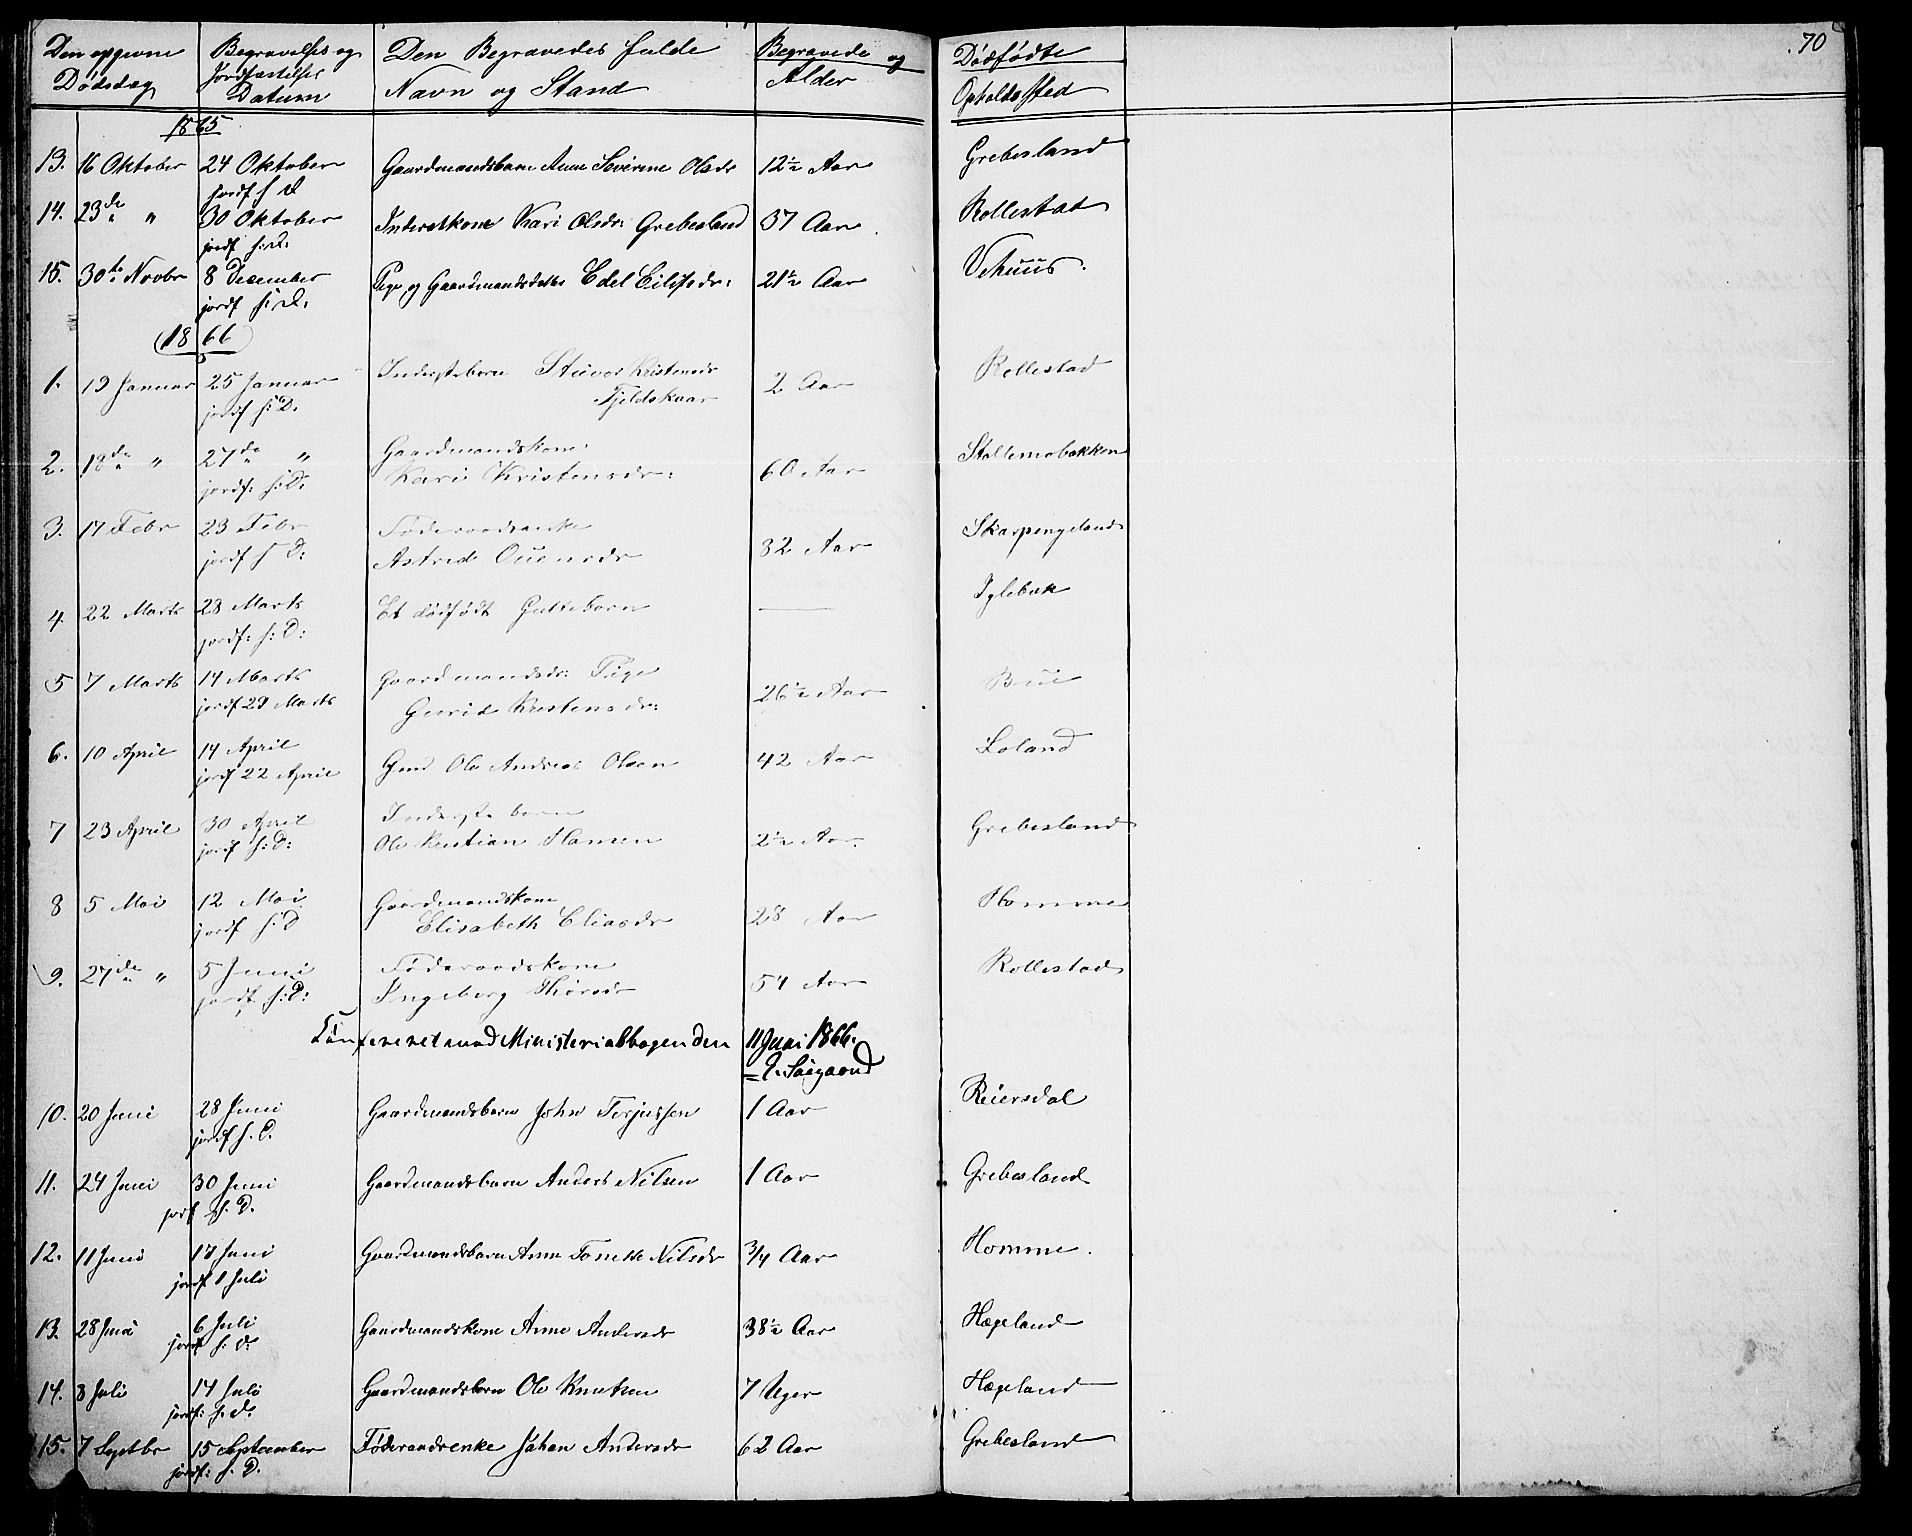 .70
Den opgivne Dødsdag
Begravelses og Jordfæstelses Datum
Den Begravedes fulde Navn og Stand
Begravede og Alder
Dødfødte Opholdssted
1865
13. 16 Oktober 24 Oktober Gaardmandsbarn Anne Severine Olsdr 12½ Aar Grebesland
jordf s D
14. 23de " 30 Oktober Inderstkone Kari Olsdr: Grebesland 37 Aar Rollestad
jordf s: D:
15. 30te Novbr 8 December Pige og Gaardmandsdatter Edel Eilifsdr: 21½ Aar Vehuus.
jordf s: D:
1866
1. 19 Januar 25 Januar Inderstebarn Siuvor Kristensdr 2 Aar Rollestad
jordf s: D. Fjeldskaar
2. 18de " 27de " Gaardmandskone 60 Aar Stallemobakken
jordf: s: D: Kari Kristensdr:
3. 17 Febr 23 Febr Føderaadsenke 82 Aar Skarpengeland
jordf s D: Astrid Ouensdr
4. 22 Marts 28 Marts Et dødfødt Guttebarn — Iglebæk
jordf: s: D:
5 7 Marts 14 Marts Gaardmandsdr: Pige 26½ Aar Bue
jordf 29 Marts Gurid Kristensdr:
6. 10 April 14 April Gmd Ole Andreas Olsen 42 Aar Loland
jordf 22 April
7 23 April 30 April Inderstebarn 2½ Aar. Grebesland
jordf s: D: Ole Kristian Hansen
8 5 Mai 12 Mai Gaardmandskone 28 Aar Homme
jordf s: D Elisabeth Eliasdr
9. 27de " 5 Juni Føderaadskone 54 Aar Rollestad
jordf s: D: Ingeborg Thorsdr
Konfereret med Ministerialbogen den 11 Juni 1866.
Søegaard
10. 20 Juni 28 Juni Gaardmandsbarn John Terjussen 1 Aar Reiersdal
jordf s. D.
11. 24 Juni 30 Juni Gaardmandsbarn Anders Nilsen 1 Aar Grebesland
jordf s. D.
12. 11 Juni 17 Juni Gaardmandsbarn Anne Tonette Nilsdr 3/4 Aar Homme.
jordf 1 Juli
13. 28 Juni 6 Juli Gaardmandskone Anne Andersdr 38½ Aar Hægeland
jordf s: D:
14. 8 Juli 14 Juli Gaardmandsbarn Ole Knutsen 7 Uger Hægeland
jordf: s. D:
15. 7 Septbr 15 September Føderaadsenke Johan Andersdr 62 Aar Grebesland
jordf: s. D.